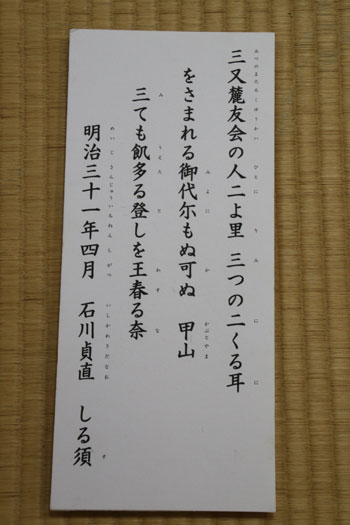 三又麓友会の人二よ里 三つの二くる耳
をさまれる御代尓もぬ可ぬ 甲山
三ても飢多る登しを王春る奈
明治三十一年四月 石川貞直 しる須